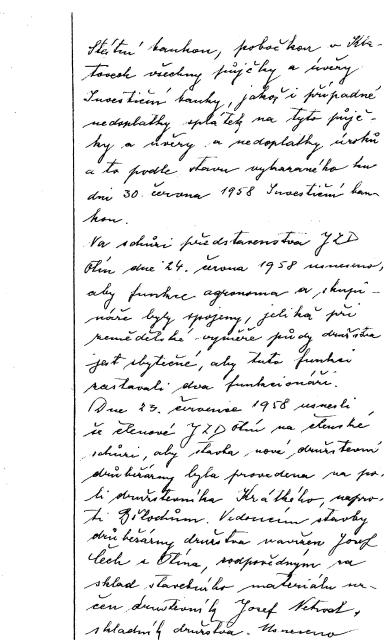 Státní bankou, pobočkou v Kla-
tovech všechny půjčky a úvěry
Investiční banky, jakož i případné
nedoplatky splátek na tyto půjč-
ky a úvěry a nedoplatky úroků
a to podle stavu vykázaného ku
dni 30. června 1958 Investiční ban-
kou.
Na schůzi představenstva JZD
Olín dne 24. června 1958 usneseno,
aby funkce agronoma a skupi-
náře byly spojeny, jelikož při
zemědělské výměře půdy družstva
jest zbytečné, aby tuto funkci
zastávali dva funkcionáři.
Dne 23. července 1958 usnesli
se členové JZD Olín na členské
schůzi, aby stavba nové družstevní
drůbežárny byla provedena na po-
li družstevníka Krátkého, napro-
ti Bílochům. Vedoucím stavby
drůbežárny družstva navržen Josef
Lech z Olína, zodpovědným za
sklad stavebního materiálu ur-
čen družstevník Josef
skladník družstva. Usneseno